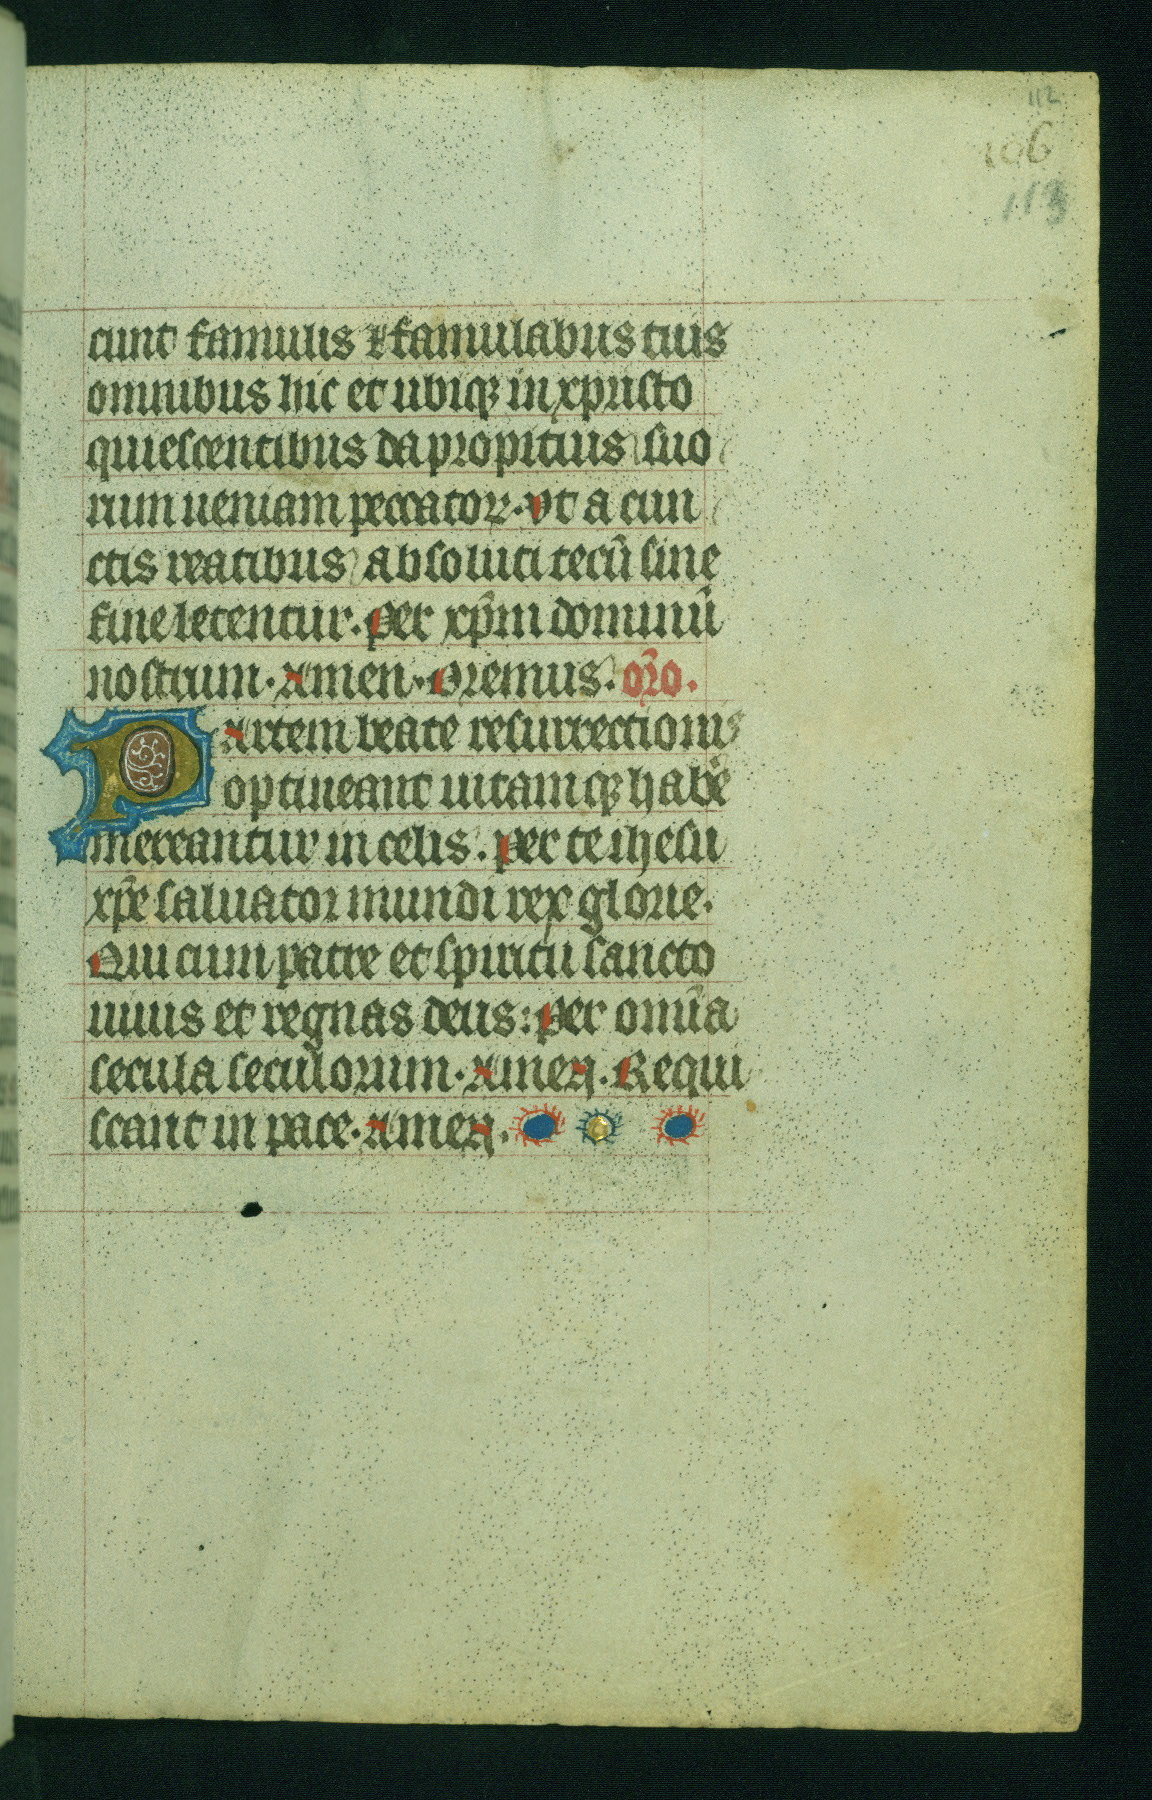 112
106
113
cunt famulis ⁊ famulabus tuis
omnibus hic et ubiqꝫ in xpristo
quiescentibus da propitius suo
rum ueniam peccatoꝝ. vt a cun
ctis reatibus absoluti tecū sine
fine letentur. Per xp̄m dominū
nostrum. Amen. Oremus. or̄o.
Partem beate resurrectionis
optineant uitamqꝫ habē
mereantur in celis. Per te ihesu
xp̄e saluator mundi rex glorie.
Qui cum patre et spiritu sancto
uiuis et regnas deus: Per omīa
secula seculorum. Amen. Requi
scant in pace. Amen.